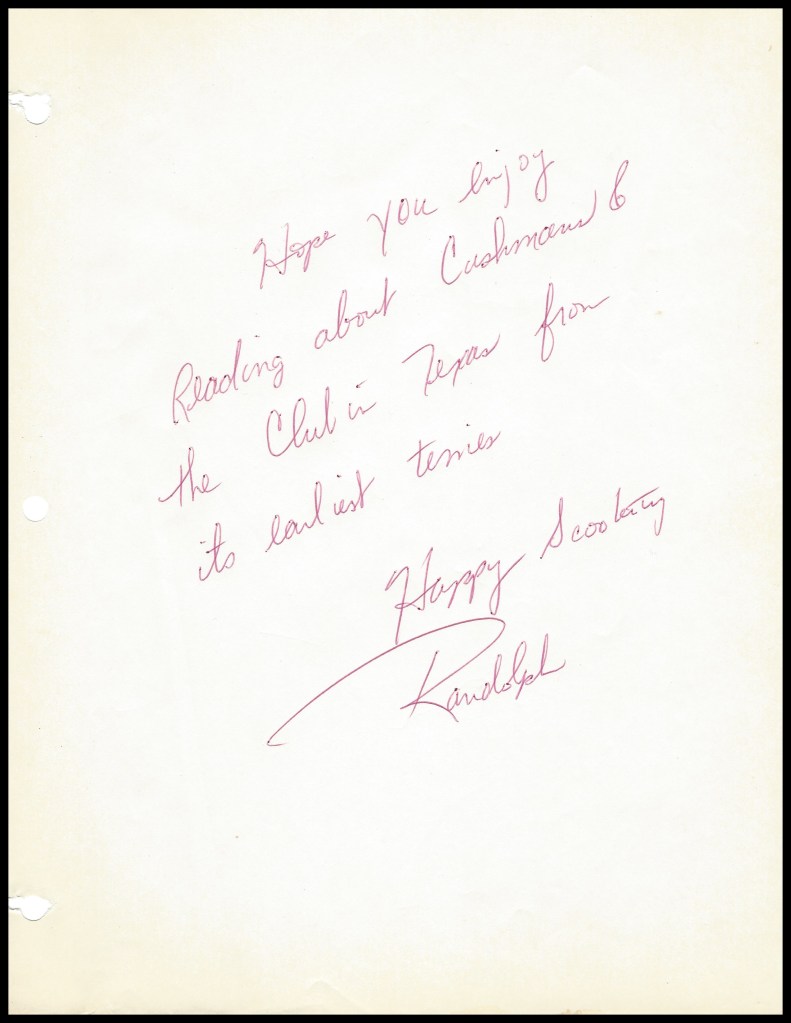 Hope you enjoy
Reading about Cushmans &
the Club in Texas from
its earliest temies
Happy Scooting
Randolph